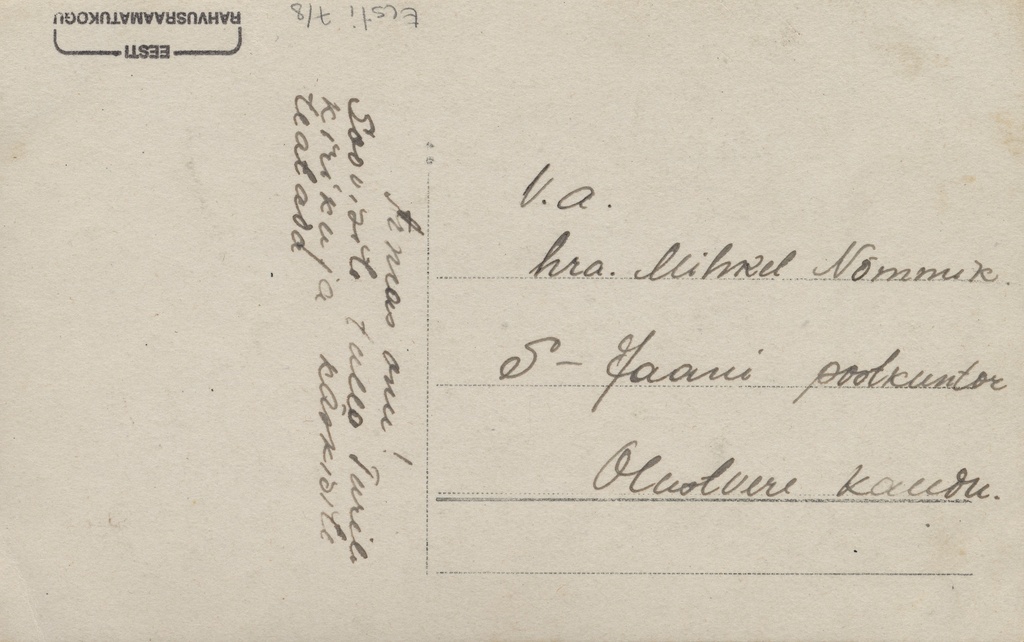 EESTI
RAHVUSRAAMATUKOGU
Eesti 7/8
Armas onu!
Soovisite tulla Türile
kiriku ja käskisite
teatada
V.a.
hra. Mihkel Nõmmik.
S-Jaani postkuntor
Olustvere kaudu.